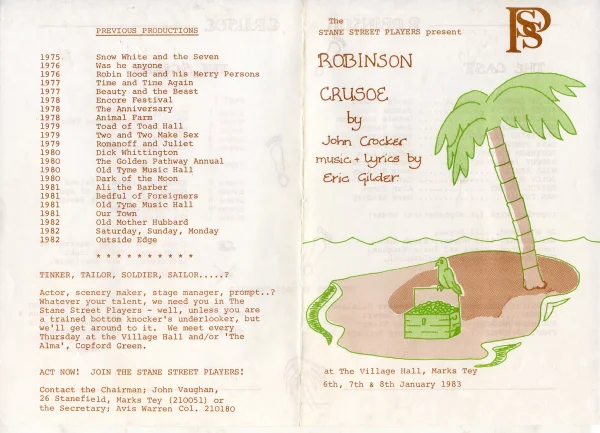 PREVIOUS PRODUCTIONS
1975 Snow White and the Seven
1976 Was he anyone
1976 Robin Hood and his Merry Persons
1977 Time and Time Again
1977 Beauty and the Beast
1978 Encore Festival
1978 The Anniversary
1978 Animal Farm
1979 Toad of Toad Hall
1979 Two and Two Make Sex
1979 Romanoff and Juliet
1980 Dick Whittington
1980 The Golden Pathway Annual
1980 Old Tyme Music Hall
1980 Dark of the Moon
1981 Ali the Barber
1981 Bedful of Foreigners
1981 Old Tyme Music Hall
1981 Our Town
1982 Old Mother Hubbard
1982 Saturday, Sunday, Monday
1982 Outside Edge
* * * * * * * * * *
TINKER, TAILOR, SOLDIER, SAILOR.....?
Actor, scenery maker, stage manager, prompt..?
Whatever your talent, we need you in The
Stane Street Players - well, unless you are
a trained bottom knocker's underlooker, but
we'll get around to it. We meet every
Thursday at the Village Hall and/or 'The
Alma', Copford Green.
ACT NOW! JOIN THE STANE STREET PLAYERS!
Contact the Chairman; John Vaughan,
26 Stanefield, Marks Tey (210051) or
the Secretary; Avis Warren Col. 210180
PSS
The
STANE STREET PLAYERS present
ROBINSON
CRUSOE
by
John Crocker
music + Lyrics by
Eric Gilder
at The Village Hall, Marks Tey
6th, 7th & 8th January 1983